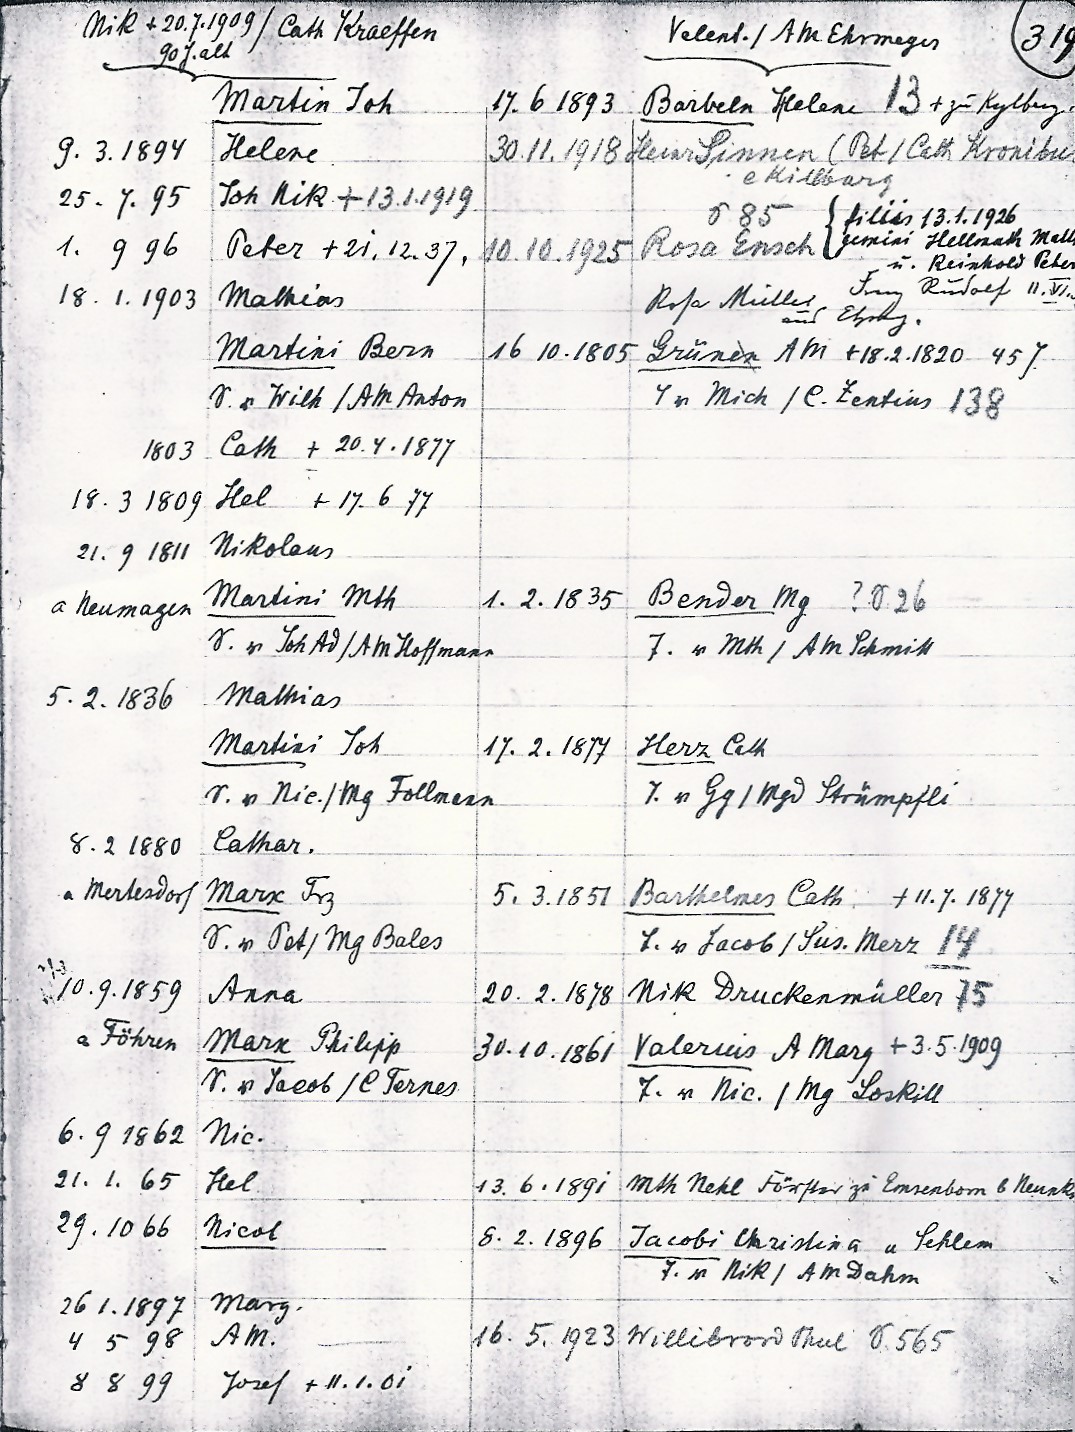 Nik + 20.7.1909 / Cath Kraeffen Valent. / AM Ehrmeyer 319
90 J. alt
Martin Joh 17. 6 1893 Barbeln Helene 13 + zu Kylbrg.
9. 3. 1894 Helene 30. 11. 1918 Heinr Sinnen (Pet / Cath Kronibus
e Killburg
25. 7. 95 Joh Nik + 13.1.1919 S 85 { filiis 13.1.1926
1. 9 96 Peter + 21. 12. 37, 10. 10. 1925 Rosa Ensch gemini Hellmuth Math
u. Reinhold Peter
18. 1. 1903 Mathias Rosa Müller Rudolf 11. VI.
aus Ehrg.
Martini Bern 16 10. 1805 Grünen AM + 18.2.1820 45 J.
S. v Wilh / AM Anton T v Mich / C. Zentius 138
1803 Cath + 20. 4. 1877
18. 3 1809 Hel + 17. 6 77
21. 9 1811 Nikolaus
a Neumagen Martini Mth 1. 2. 1835 Bender Mg ? S. 26
S. v Joh Ad / AM Hoffmann T. v Mth / AM Schmitt
5. 2. 1836 Mathias
Martini Joh 17. 2. 1877 Herz Cath
S. v Nic. / Mg Follmann T. v Gg / Mgd Strümpfli
8. 2 1880 Cathar.
a Mertesdorf Marx Frz 5. 3. 1851 Barthelmes Cath + 11. 7. 1877
S. v Pet / Mg Bales T. v Jacob / Sus. Merz 14
10. 9. 1859 Anna 20. 2. 1878 Nik Druckenmüller 75
a Föhren Marx Philipp 30. 10. 1861 Valerius A Marg + 3. 5. 1909
S. v Jacob / C Ternes T. v Nic. / Mg Loskill
6. 9 1862 Nic.
21. 1. 65 Hel 13. 6. 1891 Mth Nehl Förster zu b
29. 10 66 Nicol 8. 2. 1896 Jacobi Christina a Sehlem
T. v Nik / AM Dahm
26 1. 1897 Marg.
4 5 98 AM. 16. 5. 1923 Willibrord Thul S. 565
8 8 99 Josef + 11. 1. 01